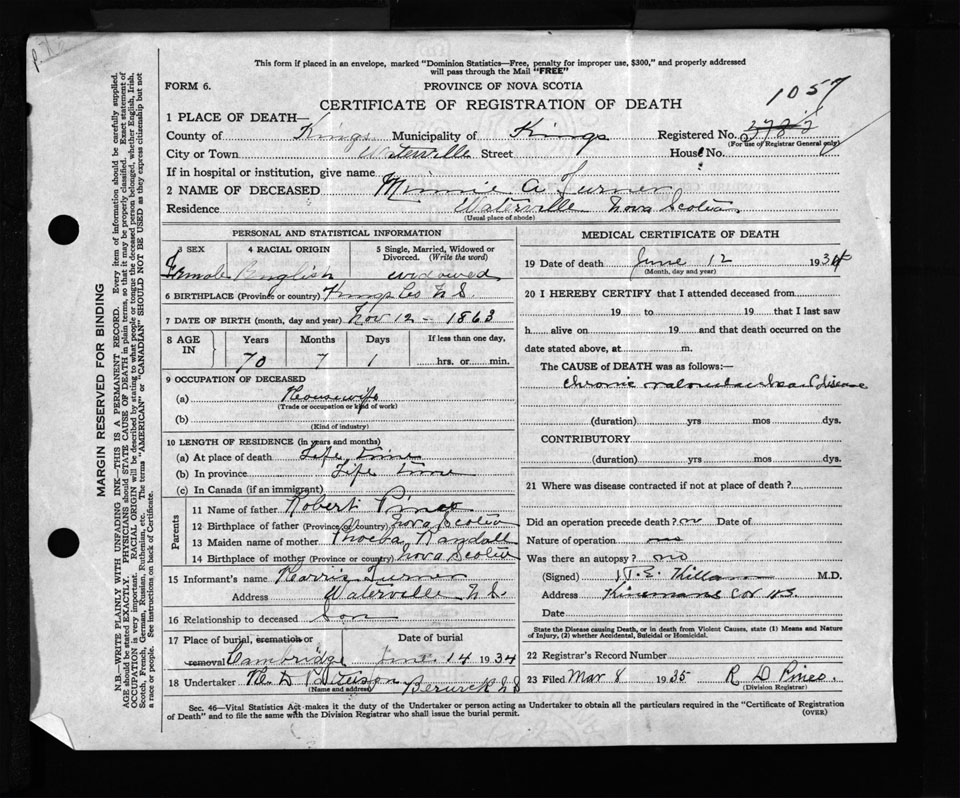 This form if placed in an envelope, marked "Dominion Statistics—Free, penalty for improper use, $300," and properly addressed
will pass through the Mail "FREE"
FORM 6.
PROVINCE OF NOVA SCOTIA
1057
CERTIFICATE OF REGISTRATION OF DEATH
1 PLACE OF DEATH—
County of Kings Municipality of Kings Registered No.
(For use of Registrar General only)
City or Town Waterville Street House No.
If in hospital or institution, give name
2 NAME OF DECEASED Minnie A Turner
Residence Waterville Nova Scotia
(Usual place of abode)
PERSONAL AND STATISTICAL INFORMATION
3 SEX 4 RACIAL ORIGIN 5 Single, Married, Widowed or Divorced. (Write the word)
Female English widowed
6 BIRTHPLACE (Province or country) Kings Co N.S.
7 DATE OF BIRTH (month, day and year) Nov 12 - 1863
8 AGE IN Years Months Days If less than one day,
70 7 1 hrs. or min.
9 OCCUPATION OF DECEASED
(a) Housewife
(Trade or occupation or kind of work)
(b)
(Kind of industry)
10 LENGTH OF RESIDENCE (in years and months)
(a) At place of death Life time
(b) In province Life time
(c) In Canada (if an immigrant)
Parents
11 Name of father Robert Pineo
12 Birthplace of father (Province or country) Nova Scotia
13 Maiden name of mother Phoeba Randall
14 Birthplace of mother (Province or country) Nova Scotia
15 Informant's name Turner
Address Waterville N.S.
16 Relationship to deceased Son
17 Place of burial, cremation or removal Cambridge Date of burial June 14 1934
18 Undertaker Patterson Berwick N S
(Name and address)
MEDICAL CERTIFICATE OF DEATH
19 Date of death June 12 1934
(Month, day and year)
20 I HEREBY CERTIFY that I attended deceased from
19 to 19 that I last saw
h alive on 19 and that death occurred on
date stated above, at m.
The CAUSE of DEATH was as follows:—
chronic valvular heart disease
(duration) yrs mos dys.
CONTRIBUTORY
(duration) yrs mos dys.
21 Where was disease contracted if not at place of death?
Did an operation precede death? no Date of
Nature of operation no
Was there an autopsy? no
(Signed) M.D.
Address Kinsmans Cor N.S.
Date
State the Disease causing Death, or in death from Violent Causes, state (1) Means and Nature
of Injury, (2) whether Accidental, Suicidal or Homicidal.
22 Registrar's Record Number
23 Filed Mar 8 1935 R D Pineo.
(Division Registrar)
Sec. 46—Vital Statistics Act makes it the duty of the Undertaker or person acting as Undertaker to obtain all the particulars required in the "Certificate of Registration
of Death" and to file the same with the Division Registrar who shall issue the burial permit.
(OVER)
MARGIN RESERVED FOR BINDING
N.B.—WRITE PLAINLY WITH UNFADING INK—THIS IS A PERMANENT RECORD. Every item of information should be carefully supplied.
AGE should be stated EXACTLY. PHYSICIANS should STATE CAUSE OF DEATH in plain terms, so that it may be properly classified. Exact statement of
OCCUPATION is very important. RACIAL ORIGIN will be described by stating to what people or tongue the deceased person belonged, whether English, Irish,
Scotch, French, German, Russian, Ruthenian, etc. The terms "AMERICAN" or "CANADIAN" SHOULD NOT BE USED as they express citizenship but not
a race or people. See instructions on back of Certificate.